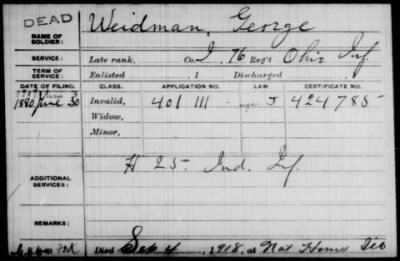 DEAD
NAME OF SOLDIER: Weidman, George
SERVICE: Late rank, Co. I, 76 Reg't Ohio Inf.
TERM OF SERVICE: Enlisted , 1 Discharged , 1
DATE OF FILING. CLASS. APPLICATION NO. LAW. CERTIFICATE NO.
1880 June 30 Invalid, 401 111 J 424785
Widow,
Minor,
ADDITIONAL SERVICES: H 25. Ind. Inf.
REMARKS:
Died Sep 4, 1918, at Nat Home